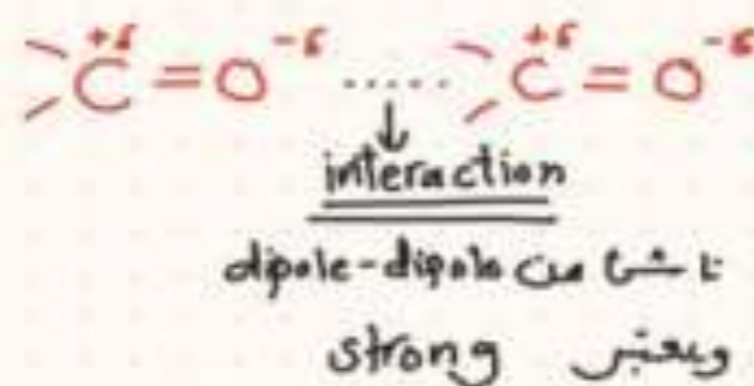 +δ -δ +δ -δ
C=O ..... C=O
↓
interaction
ناشئ من dipole-dipole
ويعتبر strong